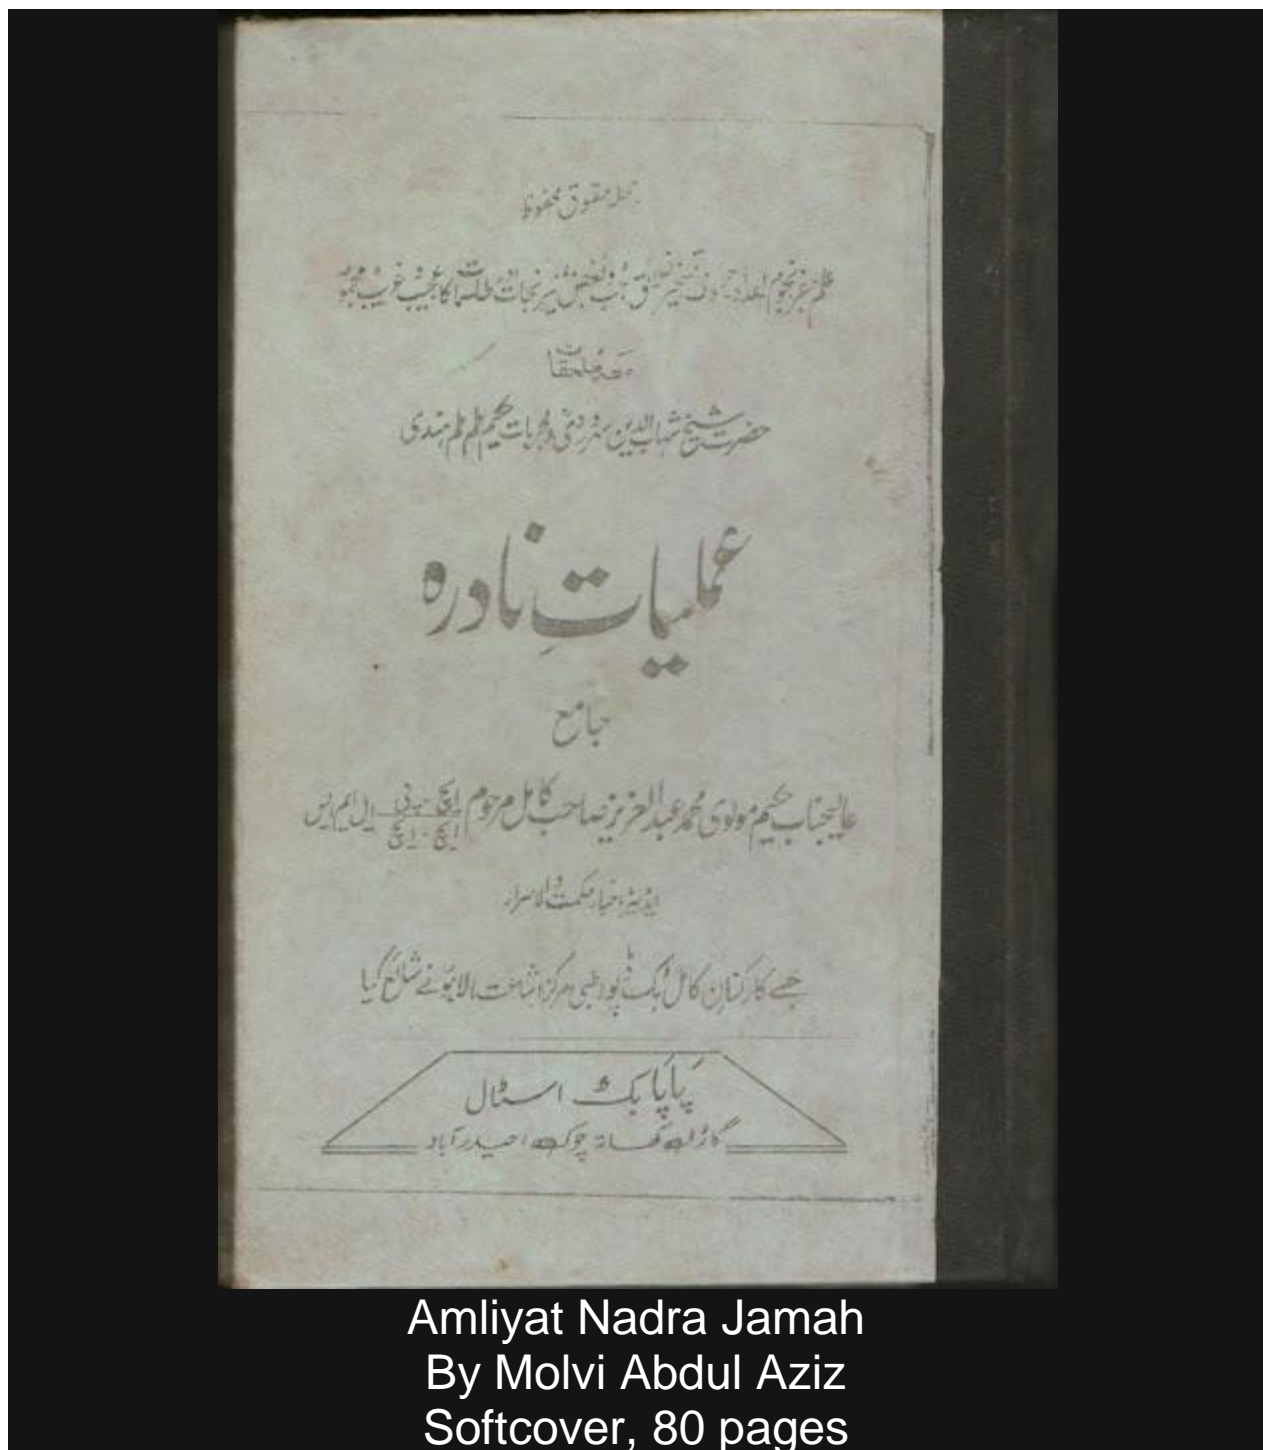 جملہ حقوق محفوظ
علم جفر نجوم اعداد حروف تسخیر تعلق حب بغض نیرنجات اور طلسمات کا عجیب و غریب مجموعہ
معہ ملحقات
حضرت شیخ شہاب الدین سہروردی و مجربات حکیم ٹم ٹم ہندی
عملیاتِ نادرہ
جامع
عالیجناب حکیم مولوی محمد عبدالعزیز صاحب کامل مرحوم ایچ۔پی ایچ۔ایچ ایل ایم ایس
ایڈیٹر اخبار حکمت و الاسرار
جسے کارکنان کامل بک ڈپو طبی مرکز اشاعت لاہور نے شائع کیا
پاپا بک اسٹال
گاڑی کھاتہ چوک، حیدرآباد
Amliyat Nadra Jamah
By Molvi Abdul Aziz
Softcover, 80 pages